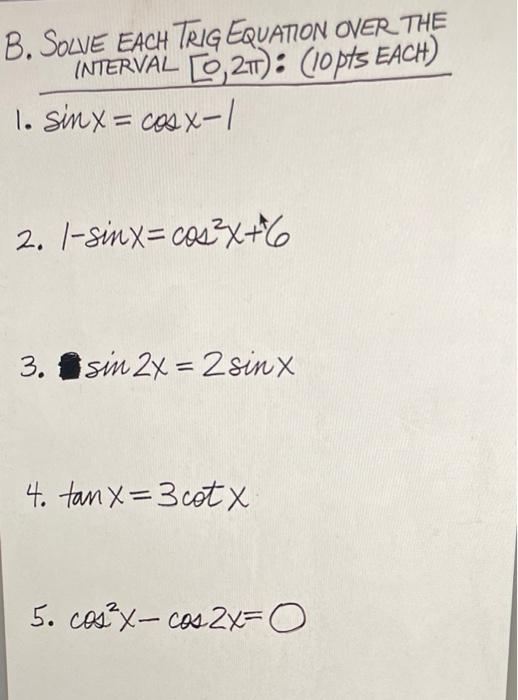 B. SOLVE EACH TRIG EQUATION OVER THE
INTERVAL [0,2π): (10 pts EACH)
1. sin x = cos x - 1
2. 1 - sin x = cos²x + 6
3. sin 2x = 2 sin x
4. tan x = 3 cot x
5. cos²x - cos 2x = 0